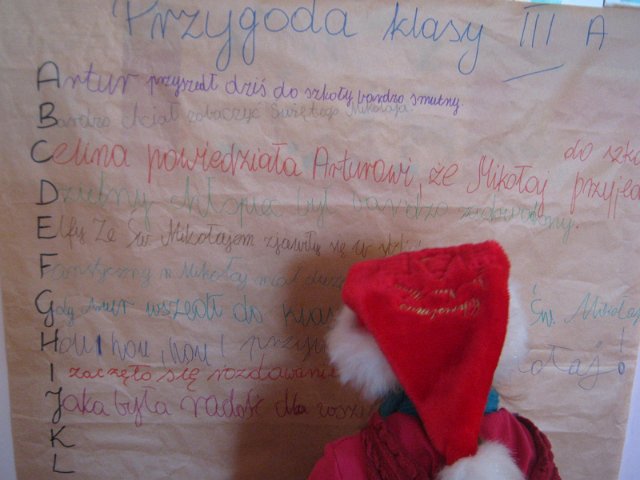 Przygoda klasy III A
Artur przyszedł dziś do szkoły bardzo smutny.
Bardzo chciał zobaczyć Świętego Mikołaja
Celina powiedziała Arturowi, że Mikołaj przyjed do szko
Dzielny chłopiec był bardzo zadowolony.
Elfy ze Św. Mikołajem zjawiły się w
Fantastyczny Mikołaj miał
Gdy Artur wszedł do klas Św. Mikołaj
Hou! hou, hou! przyj łaj!
I zaczęło się rozdawanie
Jaka była radość dla wszy
K
L